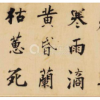 寒雨滴
黄昏蘭
枯蕙死